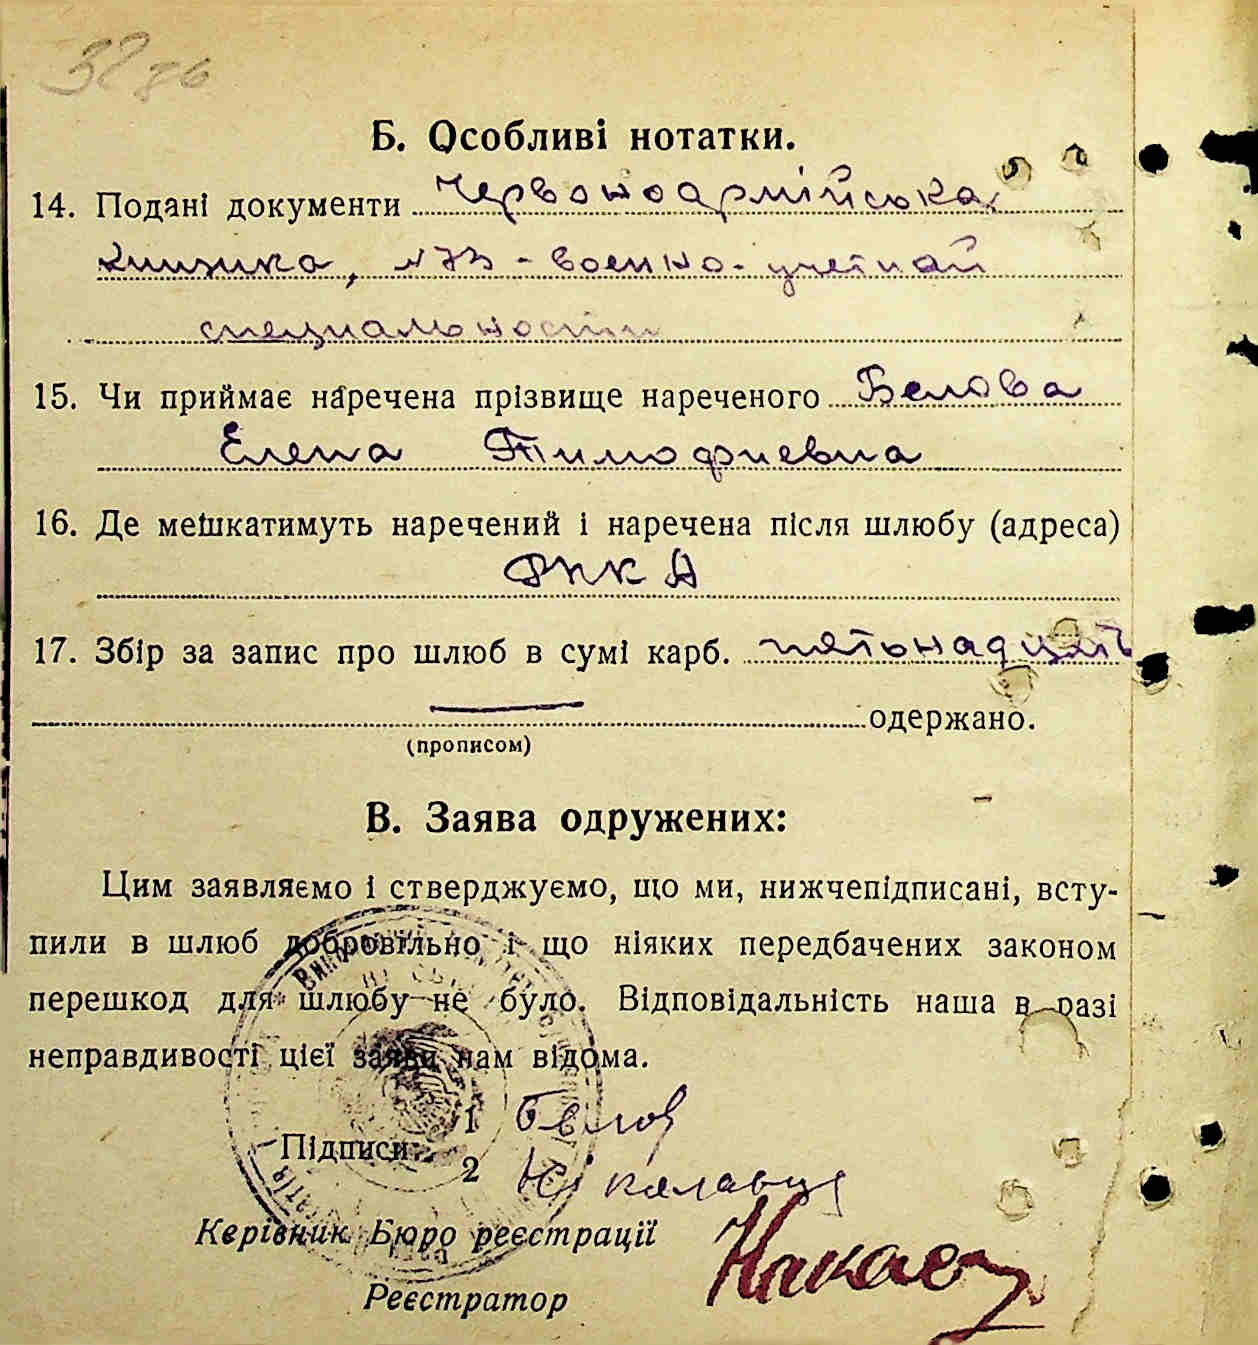 32
Б. Особливі нотатки.
14. Подані документи Червоноармійська
книжка, – военно-учетной
специальности
15. Чи приймає наречена прізвище нареченого Белова
Елена Тимофиевна
16. Де мешкатимуть наречений і наречена після шлюбу (адреса)
РККА
17. Збір за запис про шлюб в сумі карб. пятьнадцять
— одержано.
(прописом)
В. Заява одружених:
Цим заявляємо і стверджуємо, що ми, нижчепідписані, всту-
пили в шлюб добровільно і що ніяких передбачених законом
перешкод для шлюбу не було. Відповідальність наша в разі
неправдивості цієї заяви нам відома.
Підписи: 1 Белов
2
Керівник Бюро реєстрації
Реєстратор